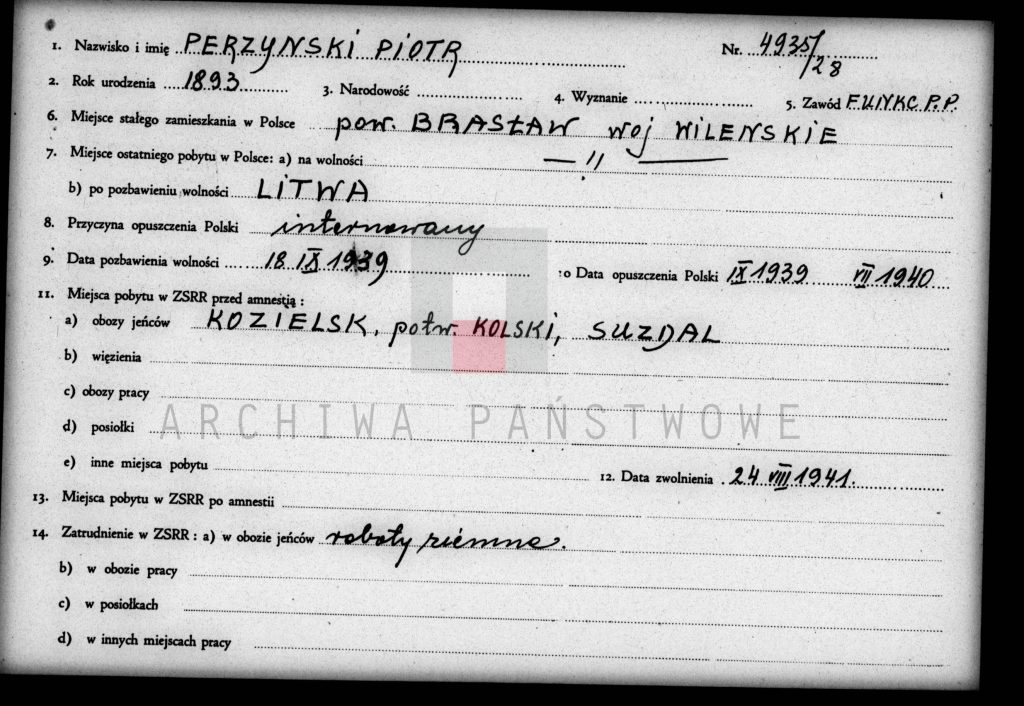 1. Nazwisko i imię PERZYNSKI PIOTR Nr. 4935/28
2. Rok urodzenia 1893 3. Narodowość 4. Wyznanie 5. Zawód FUNKC. P.P.
6. Miejsce stałego zamieszkania w Polsce pow. BRASŁAW woj WILEŃSKIE
7. Miejsce ostatniego pobytu w Polsce: a) na wolności — " —
b) po pozbawieniu wolności LITWA
8. Przyczyna opuszczenia Polski internowany
9. Data pozbawienia wolności 18 IX 1939 10 Data opuszczenia Polski IX 1939 VII 1940
11. Miejsca pobytu w ZSRR przed amnestią :
a) obozy jeńców KOZIELSK, półw. KOLSKI, SUZDAL
b) więzienia
c) obozy pracy
ARCHIWA PAŃSTWOWE
d) posiołki
e) inne miejsca pobytu 12. Data zwolnienia 24 VIII 1941.
13. Miejsca pobytu w ZSRR po amnestii
14. Zatrudnienie w ZSRR : a) w obozie jeńców roboty ziemne.
b) w obozie pracy
c) w posiołkach
d) w innych miejscach pracy